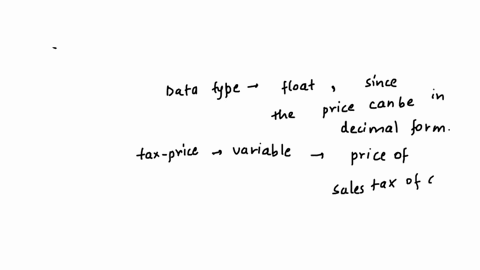 Data type → float, since
the price can be in
decimal form.
tax-price → variable → price of
sales tax of c